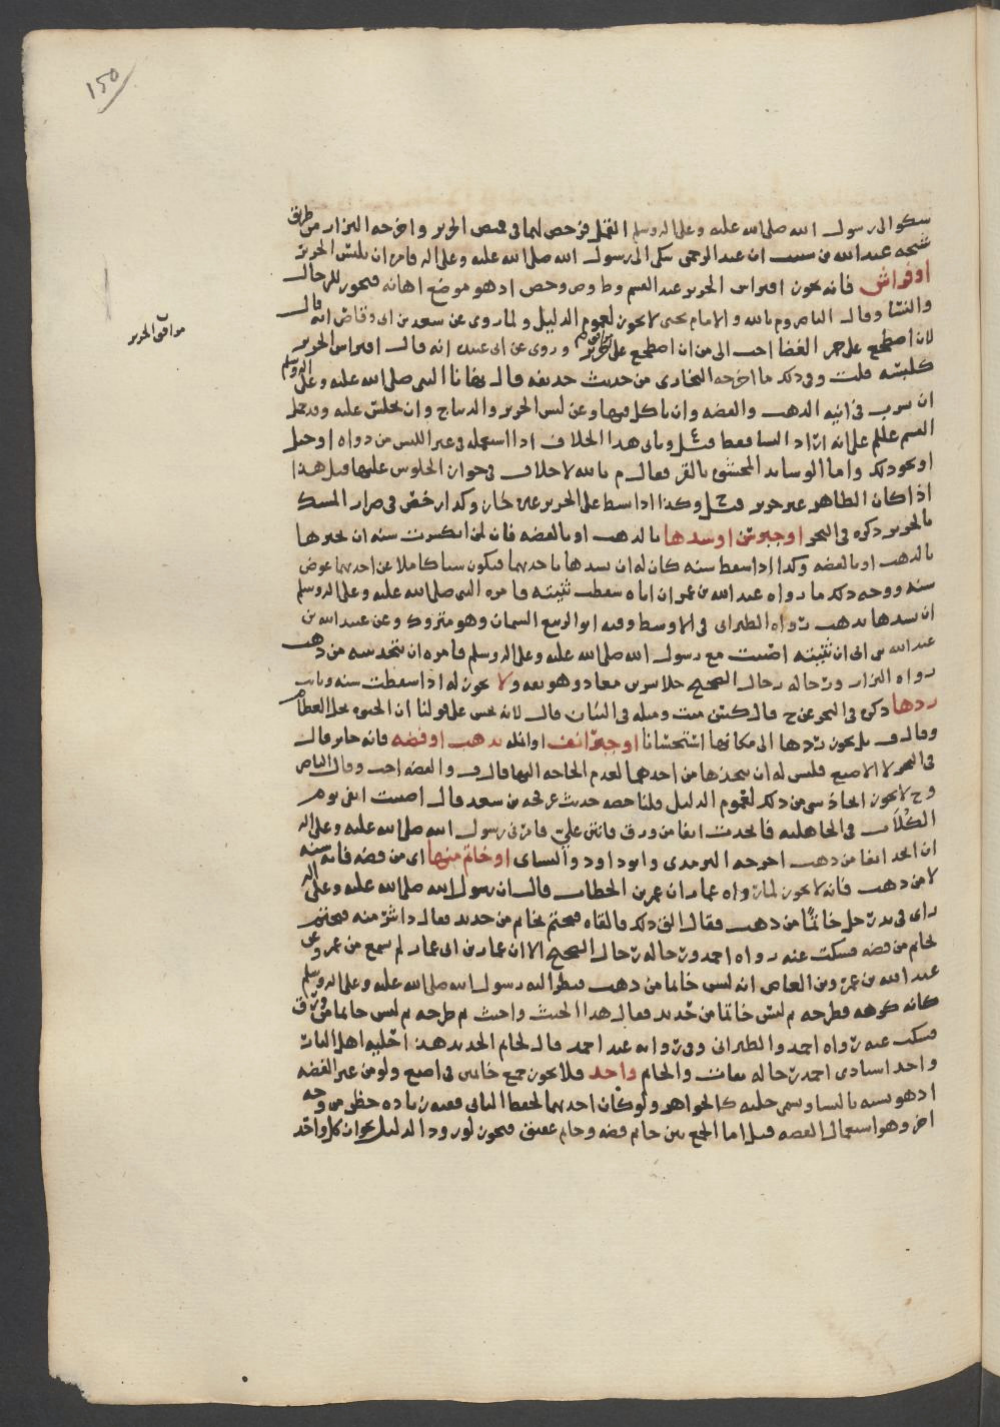 ١٥٠
شكوا الى رسول الله صلى الله عليه وعلى اله وسلم القمل فرخص لهما في قميص الحرير واخرجه البزار من طريق
شيخه عبد الله بن شبيب ان عبد الرحمن شكى الى رسول الله صلى الله عليه وعلى اله فامره ان يلبس الحرير
او فراش فانه يجوز افتراش الحرير عند القسم وط وص وحص اذ هو موضع اهانة فيجوز للرجال
والنسا وقال الناصر وم بالله والامام يحيى لا يجوز لعموم الدليل ولما روى عن سعد بن ابي وقاص انه قال
لان اضطجع على جمر الغضا احب الي من ان اضطجع على مرافق حرير وروى عن ابي عبيده انه قال افتراس الحرير
مرافق الحرير
كلبسه قلت وفي ذلك ما اخرجه البخاري من حديث حذيفه قال نهانا النبي صلى الله عليه وعلى اله وسلم
ان نشرب في انيه الذهب والفضه وان ناكل فيها وعن لبس الحرير والديباج وان نجلس عليه وقد حمل
القسم عليلم على انه اراد النسا فقط قيل وياتي هذا الخلاف اذا استعمله في غير اللبس من دواه او حبل
او نحو ذلك واما الوسايد المحشى بالقز فقال م بالله لا خلاف في جواز الجلوس عليها قيل هذا
اذا كان الظاهر غير حرير قيل وكذا اذا بسط على الحرير غيره جاز وكذا رخص في صرار المسك
بالحرير ذكره في البحر او جبر سن او سدها بالذهب او بالفضه فان لمن انكسرت سنه ان يجبرها
بالذهب او بالفضه وكذا اذا سقط سنه كان له ان يسدها باحدهما فيكون سنا كاملا من احدهما عوض
سنه ووجه ذلك ما رواه عبد الله بن عمر ان اباه سقطت ثنيته فامره النبي صلى الله عليه وعلى اله وسلم
ان يشدها بذهب رواه الطبراني في الاوسط وفيه ابو الربيع السمان وهو متروك وعن عبد الله بن
عبد الله بن ابي ان ثنيته اصيبت مع رسول الله صلى الله عليه وعلى اله وسلم فامره ان يتخذ ثنيه من ذهب
رواه البزار ورجاله رجال الصحيح خلا بشر بن معاذ وهو ثقه ولا يجوز له اذا سقطت سنه وبانت
ردها ذكره في البحر عن ح قال كسن ميت ومثله في البيان قال لانه نجس على قولنا ان الحيوه تحل العظام
وقال ف بل يجوز ردها الى مكانها استحسانا او جبر انف او انمله بذهب او فضه فانه جايز قال
في البحر لا الاصبع فليس له ان يتخذها من احدهما لعدم الحاجه اليها قال ف والفضه احب وقال الناصر
وح لا يجوز اتخاذ شي من ذلك لعموم الدليل قلنا خصه حديث عرفجه بن سعد قال اصيب انفي يوم
الكُلاب في الجاهليه فاتخذت انفا من ورق فانتن عليّ فامرني رسول الله صلى الله عليه وعلى اله
ان اتخذ انفا من ذهب اخرجه الترمذي وابو داود والنساي او خاتم منها اي من فضه فانه سنه
لا من ذهب فانه لا يجوز لما رواه عمار ان عمر بن الخطاب قال ان رسول الله صلى الله عليه وعلى اله
راى في يد رجل خاتمًا من ذهب فقال الق ذلك فالقاه فتختم بخاتم من حديد فقال ذا شر منه فتختم
بخاتم من فضه فسكت عنه رواه احمد ورجاله رجال الصحيح الا ان عمار بن ابي عمار لم يسمع من عمر وعن
عبد الله بن عمرو بن العاص انه لبس خاتما من ذهب فنظر اليه رسول الله صلى الله عليه وعلى اله وسلم
كانه كرهه فطرحه ثم لبس خاتمًا من حديد فقال هذا اخبث واخبث ثم طرحه ثم لبس خاتما من ورق
فسكت عنه رواه احمد والطبراني وفي روايه عند احمد قال لخاتم الحديد هذا حليه اهل النار
واحد اسنادي احمد رجاله ثقات والخاتم واحد فلا يجوز جمع خاتمين في اصبع ولو من غير الفضه
اذ هو تشبه بالنسا ويسمى حليه كالجواهر ولو كان احدهما لحفظ الثاني ففيه زياده حظر من وجه
اخر وهو استعمال الفضه قيل اما الجمع بين خاتم فضه وخاتم عقيق فيجوز لورود الدليل بجواز كل واحد